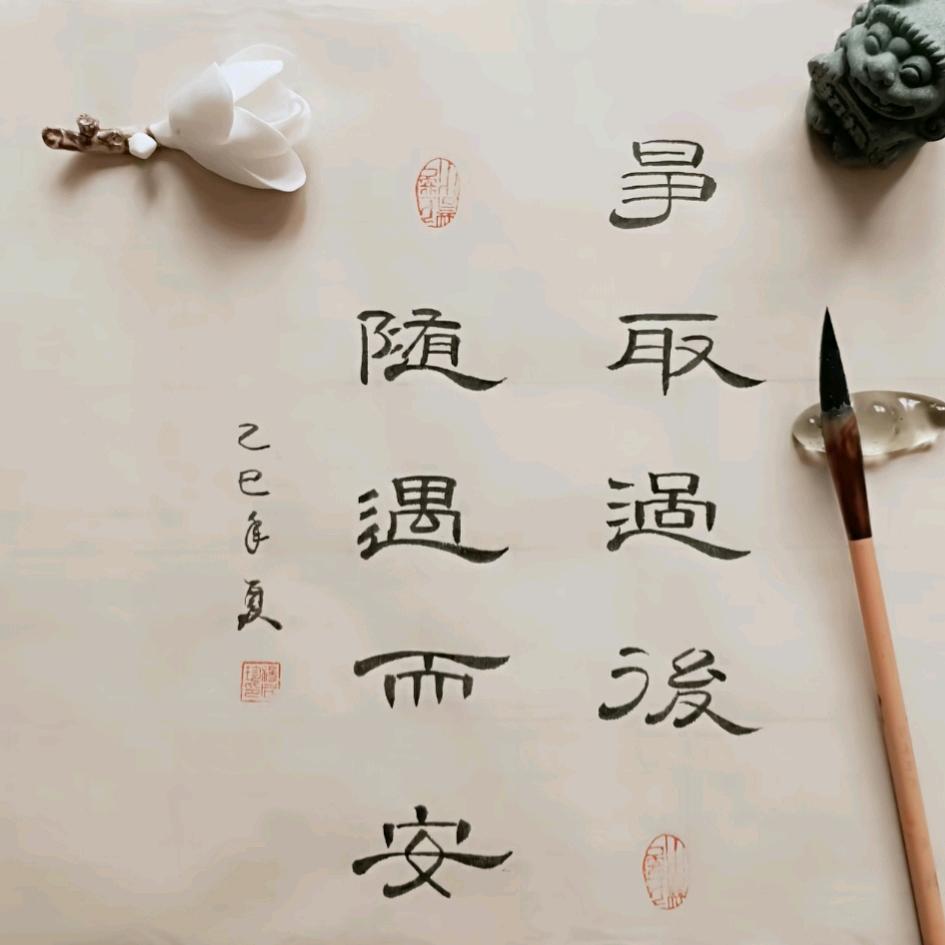 爭取過後
随遇而安
乙巳年夏